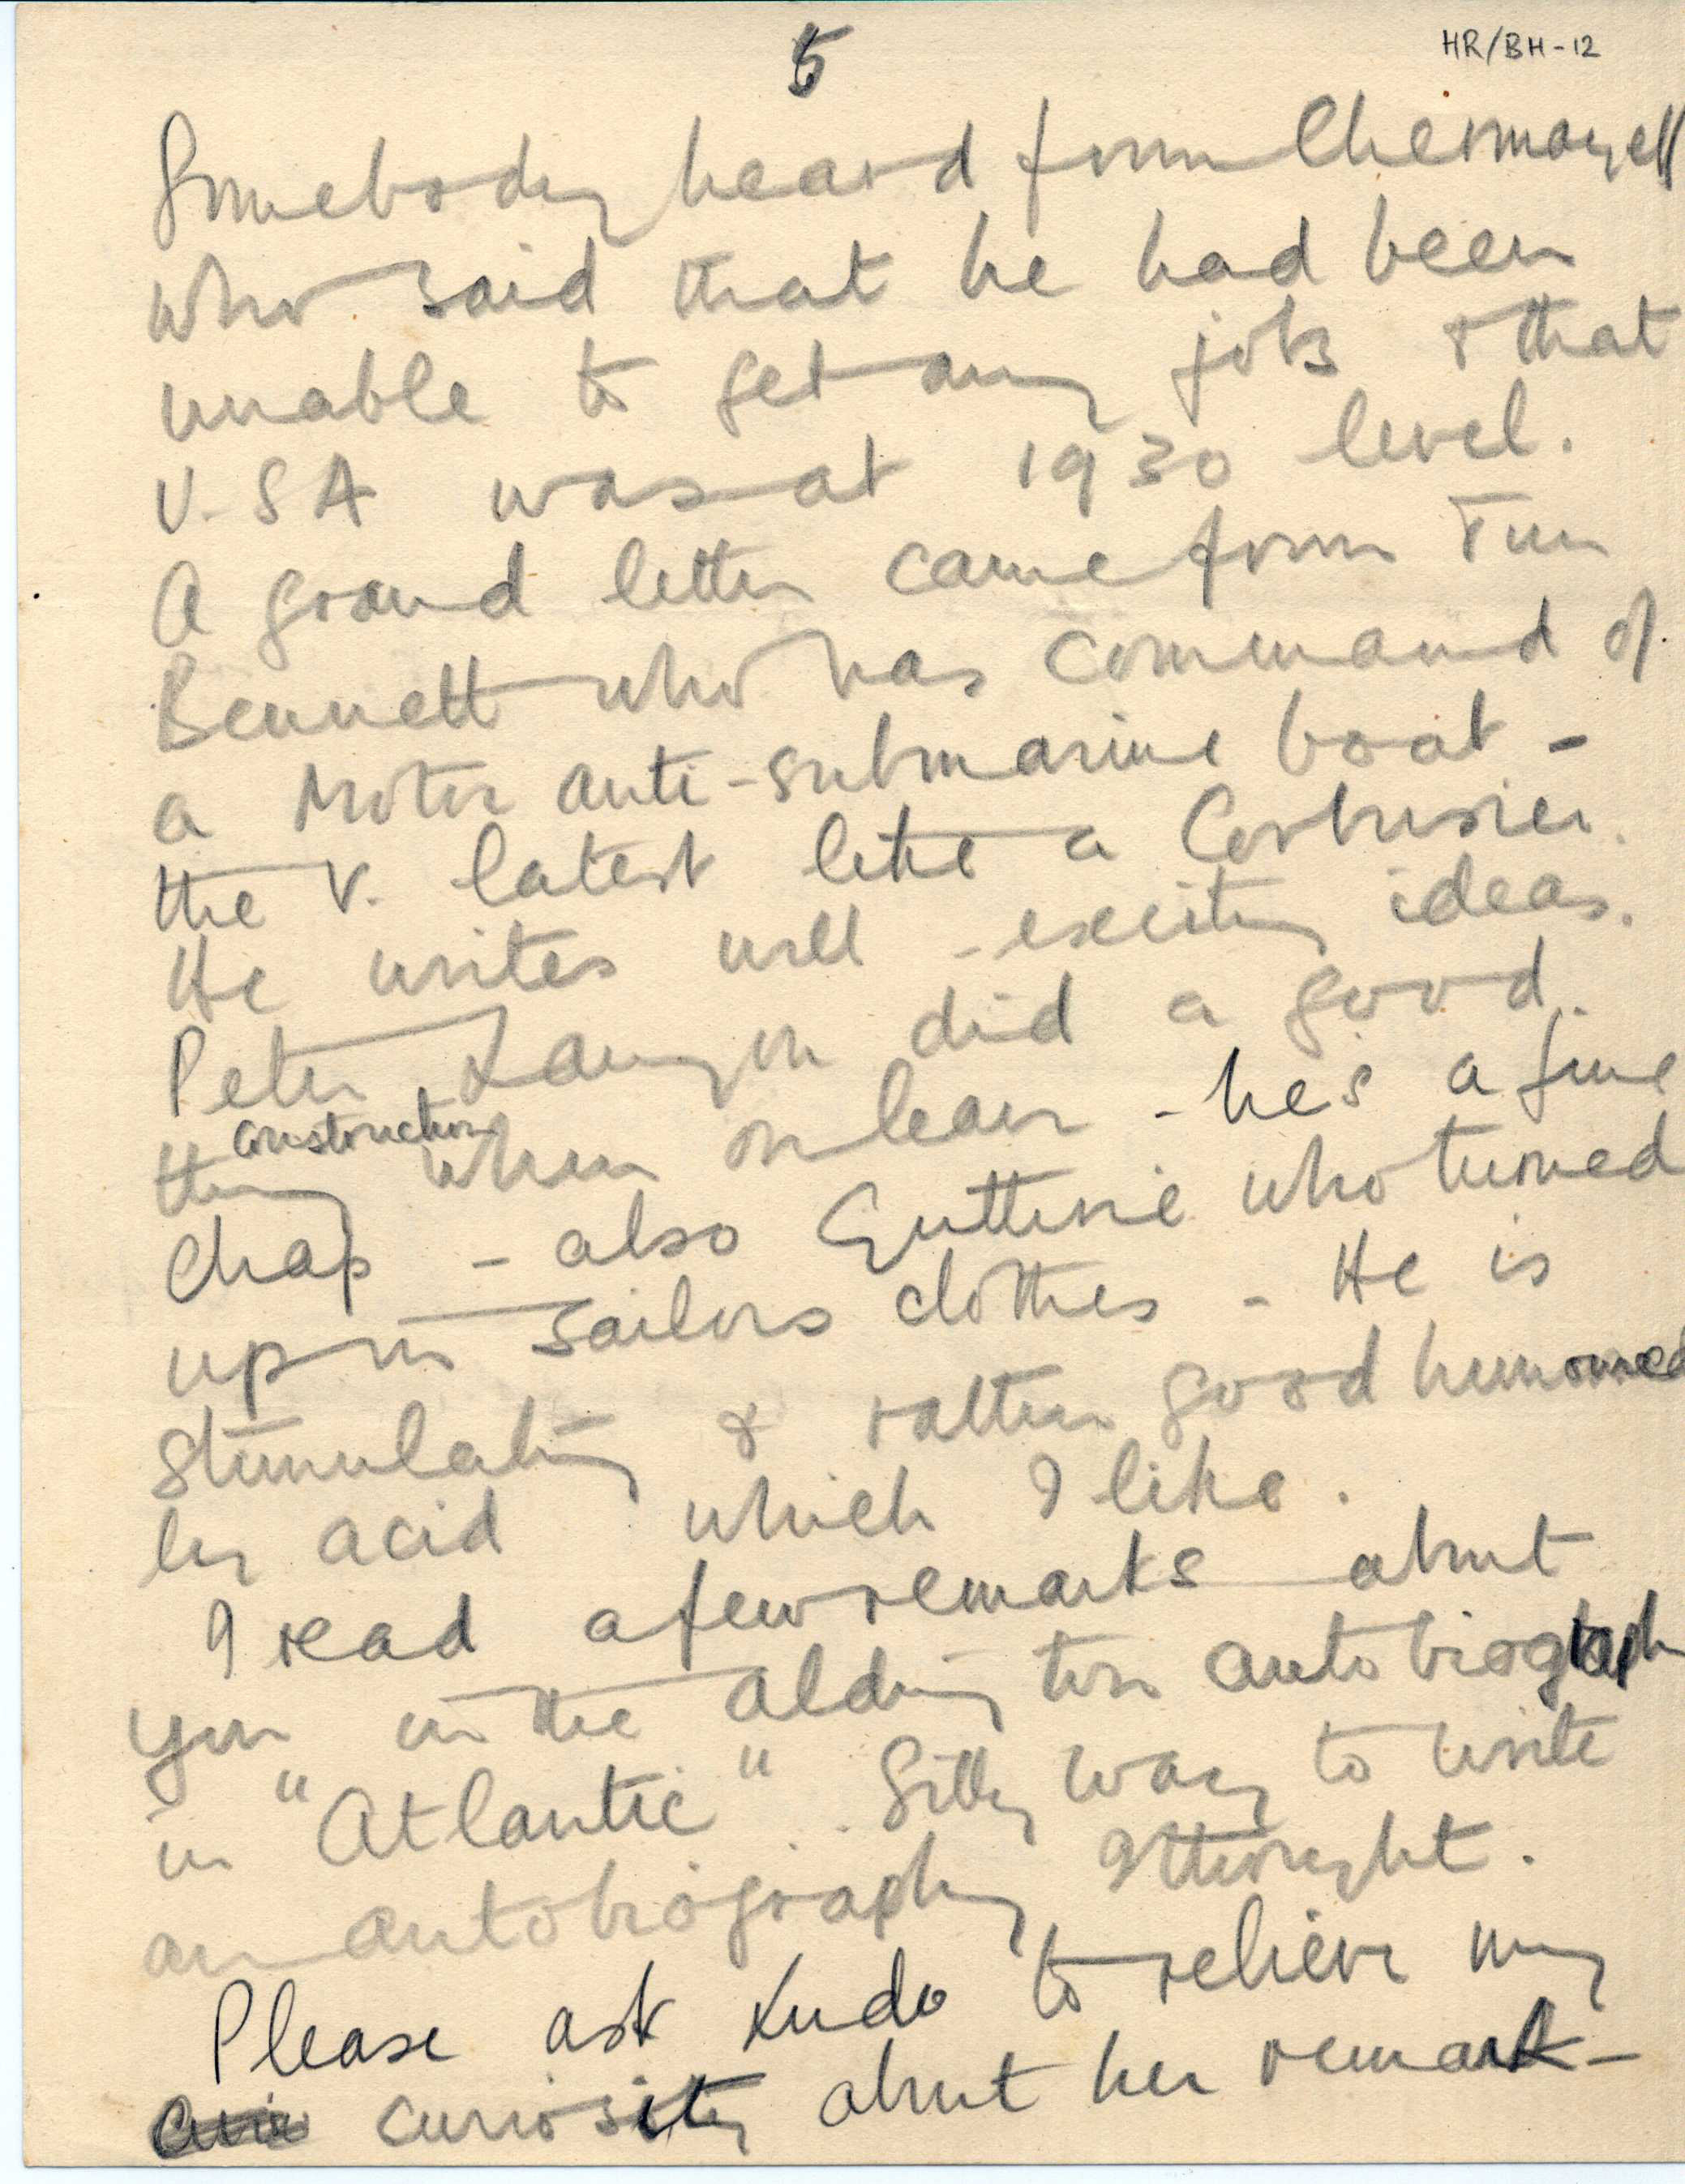 5
HR/BH-12
Somebody heard from Chermayeff
who said that he had been
unable to get any jobs & that
U.S A was at 1930 level.
A grand letter came from Tim
Bennett who has command of
a Motor anti-submarine boat -
the v. latest like a Corbusier.
He writes well - exciting ideas.
Peter Lanyon did a good
construction
thing when on leave - he's a fine
chap - also Guthrie who turned
up in sailors clothes - He is
stimulating & rather good humoured
ly acid which I like.
I read a few remarks about
you in the Aldington autobiograph
in "Atlantic". Silly way to write
an autobiography I thought.
Please ask Ludo to relieve my
curiosity about her remark -